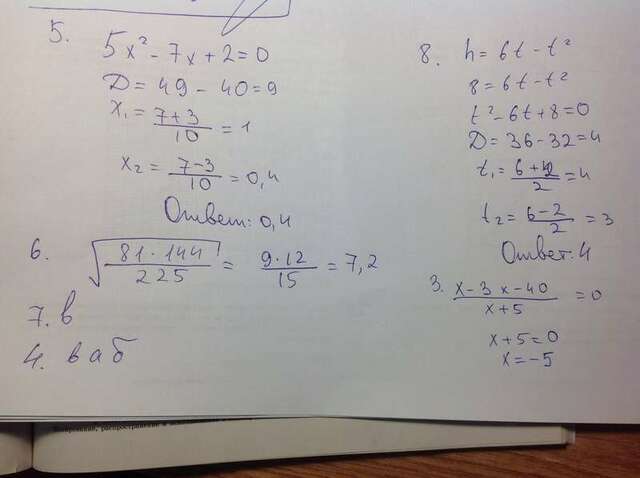 5.
5x² - 7x + 2 = 0
D = 49 - 40 = 9
x₁ = 7+3/10 = 1
x₂ = 7-3/10 = 0,4
Ответ: 0,4
6. √81·144/225 = 9·12/15 = 7,2
7. в
4. в а б
8. h = 6t - t²
8 = 6t - t²
t² - 6t + 8 = 0
D = 36 - 32 = 4
t₁ = 6+2/2 = 4
t₂ = 6-2/2 = 3
Ответ: 4
3. x - 3x - 40/x + 5 = 0
x + 5 = 0
x = -5